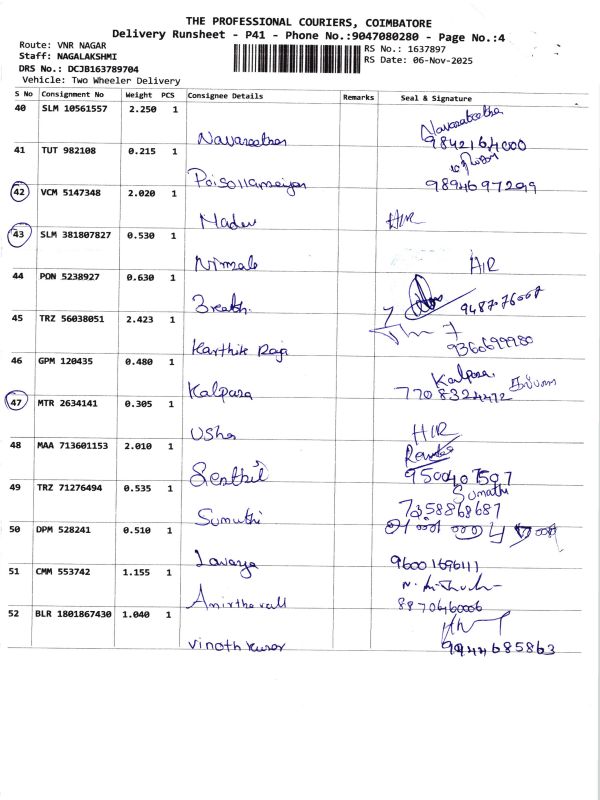 THE PROFESSIONAL COURIERS, COIMBATORE
Delivery Runsheet - P41 - Phone No.:9047080280 - Page No.:4
Route: VNR NAGAR
Staff: NAGALAKSHMI
DRS No.: DCJB163789704
Vehicle: Two Wheeler Delivery
RS No.: 1637897
RS Date: 06-Nov-2025
S No Consignment No Weight PCS Consignee Details Remarks Seal & Signature
40 SLM 10561557 2.250 1
9842164000
41 TUT 982108 0.215 1
9894697299
42 VCM 5147348 2.020 1
Madev H/R
43 SLM 381807827 0.530 1
Nirmala H/R
44 PON 5238927 0.630 1
45 TRZ 56038051 2.423 1
Karthik Raja 9360699980
46 GPM 120435 0.480 1 Kalpana கல்பனா
Kalpana 7708324472
47 MTR 2634141 0.305 1
Usha H/R
48 MAA 713601153 2.010 1
Senthil 9500407507
49 TRZ 71276494 0.535 1 Sumathi
Sumuthi 7358868687
50 DPM 528241 0.510 1
Lavanya 96001696111
51 CMM 553742 1.155 1
8870460006
52 BLR 1801867430 1.040 1
Vinoth kumar 9944685863